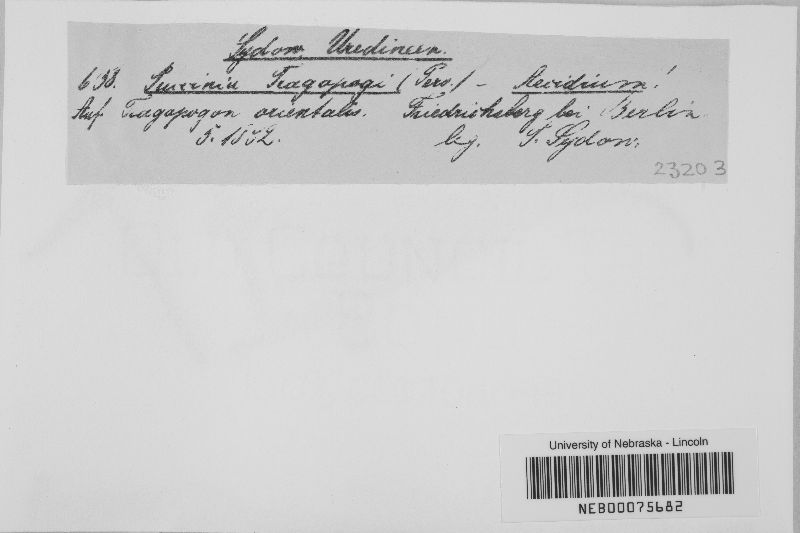 Sydow, Uredineen.
638. Puccinia Tragopogi (Pers.) - Aecidium!
Auf Tragopogon orientalis. Friedrichsberg bei Berlin.
5. 1892. leg. P. Sydow.
23203
University of Nebraska - Lincoln
NEB00075682